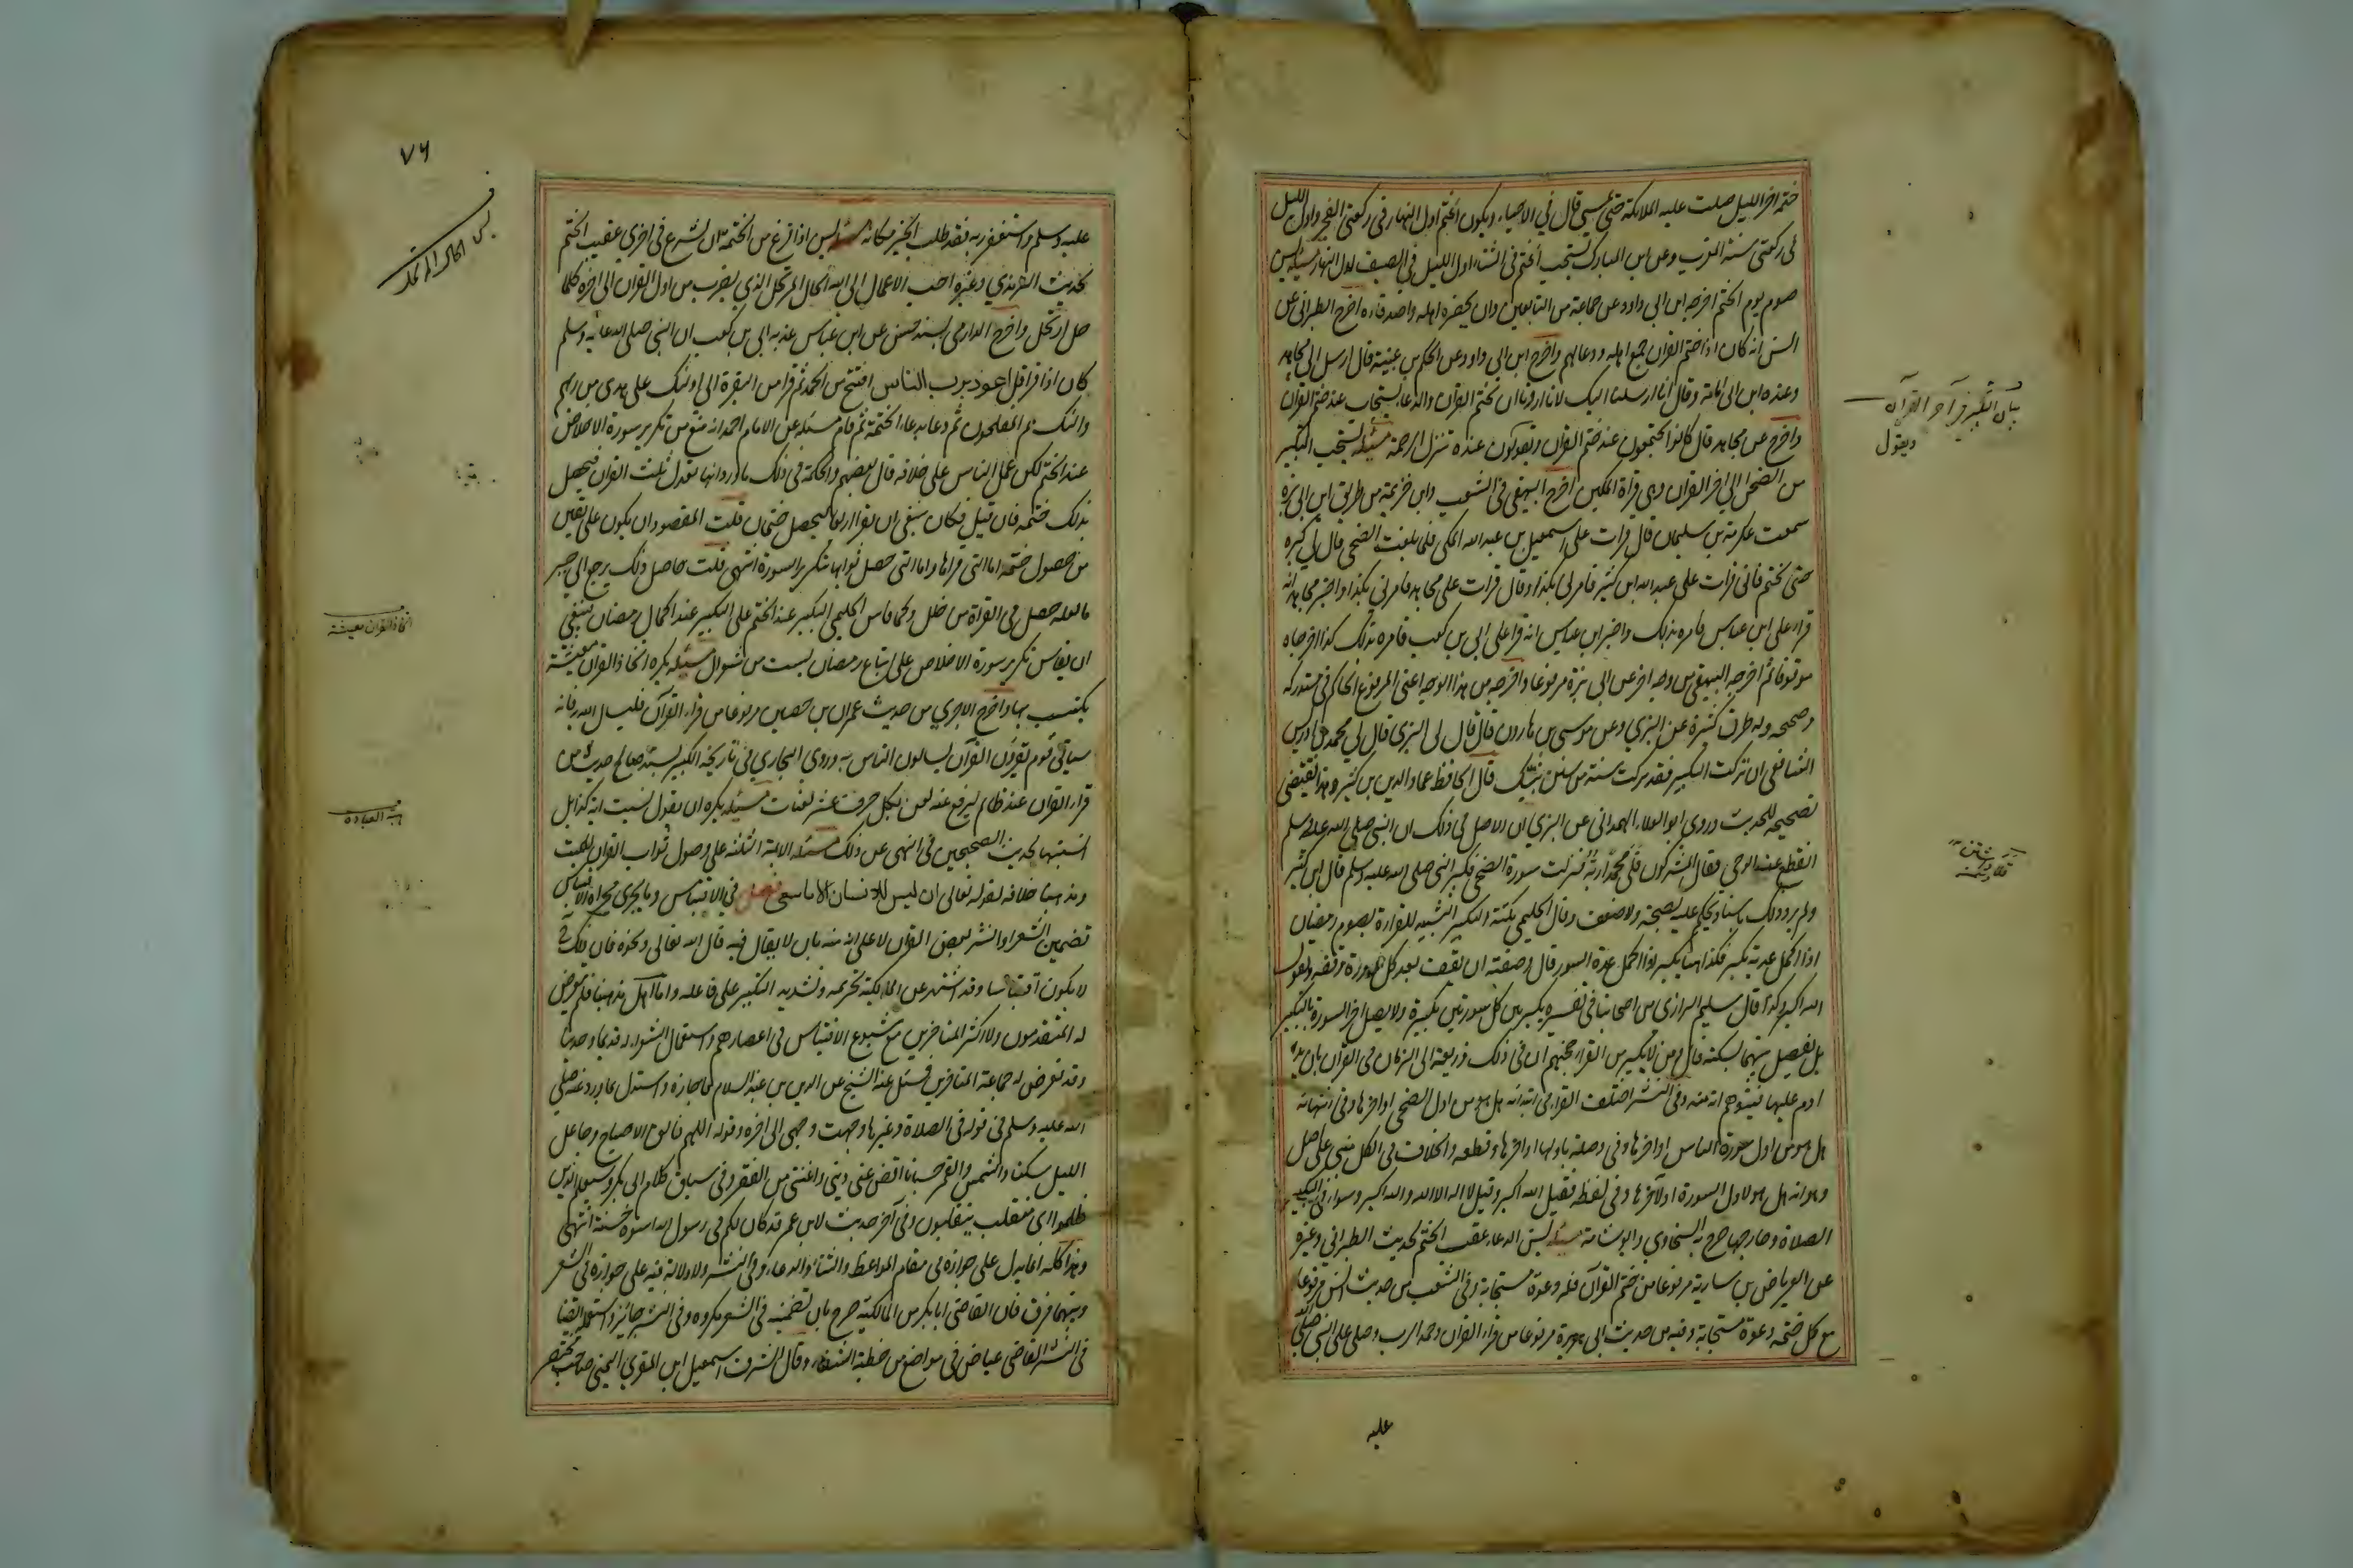 ختمه اخر الليل صلت عليه الملائكة حتى يمسي قال في الاحياء ويكون الختم اول النهار في ركعتي الفجر واول الليل
في ركعتي سنة المغرب وعن ابن المبارك يستحب الختم في الشتاء اول الليل وفي الصيف اول النهار مسئلة يسن
صوم يوم الختم اخرجه ابن ابي داود عن جماعة من التابعين وان يحضره اهله واصدقاءه اخرج الطبراني عن
انس انه كان اذا ختم القران جمع اهله ودعا لهم واخرج ابن ابي داود عن الحكم بن عيينة قال ارسل الي مجاهد
وعنده ابن ابي امامة وقال انا ارسلنا اليك لانا اردنا ان نختم القران والدعاء يستجاب عند ختم القران
واخرج عن مجاهد قال كانوا يجتمعون عند ختم القران ويقولون عنده تنزل الرحمة مسئلة يستحب التكبير
من الضحى الى اخر القران وهي قراة المكيين اخرج البيهقي في الشعب وابن خزيمة من طريق ابن ابي بزة
سمعت عكرمة بن سليمان قال قرات على اسمعيل بن عبد الله المكي فلما بلغت الضحى قال لي كبر
حتى تختم فاني قرات على عبد الله ابن كثير فامرني بكذا وقال قرات على مجاهد فامرني بكذا واخبر مجاهد انه
قراء على ابن عباس فامره بذلك واخبر ابن عباس انه قرا على ابي بن كعب فامره بذلك كذا اخرجاه
موقوفا ثم اخرجه البيهقي من وجه اخر عن ابي بزة مرفوعا واخرجه من هذا الوجه اعني المرفوع الحاكم في مستدركه
وصححه وله طرق كثيرة عن البزي وعن موسى بن هارون قال قال لي البزي قال لي محمد بن ادريس
الشافعي ان تركت التكبير فقد تركت سنة من سنن نبيك قال الحافظ عماد الدين بن كثير وهذا يقتضي
تصحيحه للحديث وروى ابو العلاء الهمداني عن البزي ان الاصل في ذلك ان النبي صلى الله عليه وسلم
انقطع عنه الوحي فقال المشركون قلى محمدا ربه فنزلت سورة الضحى فكبر النبي صلى الله عليه وسلم قال ابن كثير
ولم يرو ذلك باسناد يحكم عليه بصحة ولا ضعف وقال الحليمي نكتة التكبير التشبيه للقراءة بصوم رمضان
اذا اكمل عدته يكبر فكذا هنا يكبر اذا اكمل عدة السور قال وصفته ان يقف بعد كل سورة وقفة ويقول
الله اكبر وكذا قال سليم الرازي من اصحابنا في تفسيره يكبر بين كل سورتين تكبيرة ولا يصل اخر السورة بالتكبير
بل يفصل بينهما بسكتة قال ومن لا يكبر من القراء حجتهم ان في ذلك ذريعة الى الزيادة في القران بان يد
اوم عليها فيتوهم انه منه وفي النشر اختلف القراء في ابتدائه هل هو من اول الضحى او اخرها وفي انتهائه
هل هو من اول سورة الناس او اخرها وفي وصله باولها او اخرها وقطعه والخلاف في الكل مبني على اصل
وهو انه هل هو لاول السورة او لاخرها وفي لفظه فقيل الله اكبر وقيل لا اله الا الله والله اكبر وسواء في التكبير
الصلاة وخارجها صرح به السخاوي وابو شامة مسئلة يسن الدعاء عقب الختم لحديث الطبراني وغيره
عن العرباض بن سارية مرفوعا من ختم القران فله دعوة مستجابة وفي الشعب من حديث انس مرفوعا
مع كل ختمة دعوة مستجابة وفيه من حديث ابي هريرة مرفوعا من قراء القران وحمد الرب وصلى على النبي صلى الله
عليه
بيان التكبير في آخر القرآن
ويقول
٧٦
عليه وسلم واستغفر ربه فقد طلب الخير مكانه مسئلة يسن اذا فرغ من الختمة ان يشرع في اخرى عقيب الختم
لحديث الترمذي وغيره احب الاعمال الى الله الحال المرتحل الذي يضرب من اول القران الى اخره كلما
حل ارتحل واخرج الدارمي بسند حسن عن ابن عباس عن ابي بن كعب ان النبي صلى الله عليه وسلم
كان اذا قرا قل اعوذ برب الناس افتتح من الحمد ثم قرا من البقرة الى اولئك على هدى من ربهم
واولئك هم المفلحون ثم دعا بدعاء الختمة ثم قام مسئلة عن الامام احمد انه منع من تكرير سورة الاخلاص
عند الختم لكن عمل الناس على خلافه قال بعضهم والحكمة في ذلك ما ورد انها تعدل ثلث القران فيحصل
بذلك ختمة فان قيل فكان ينبغي ان تقرا اربعا ليحصل ختمتان قلت المقصود ان يكون على يقين
من حصول ختمة اما التي قراها واما التي حصل ثوابها بتكرير السورة انتهى قلت حاصل ذلك يرجع الى جبر
ما لعله حصل في القراة من خلل وكما قاس الحليمي التكبير عند الختم على التكبير عند اكمال رمضان ينبغي
ان يقاس تكرير سورة الاخلاص على اتباع رمضان بست من شوال مسئلة يكره اتخاذ القران معيشة
يكتسب بها واخرج الاجري من حديث عمران بن حصين مرفوعا من قراء القرآن فليسال الله به فانه
سياتي قوم يقرؤن القرآن يسالون الناس به وروى البخاري في تاريخه الكبير بسند صالح حديث من
قراء القران عند ظالم ليرفع عنه لعن بكل حرف عشر لعنات مسئلة يكره ان يقول نسيت اية كذا بل
انسيتها لحديث الصحيحين في النهي عن ذلك مسئلة الائمة الثلثة على وصول ثواب القران للميت
ومذهبنا خلافه لقوله تعالى ان ليس للانسان الا ما سعى فصل في الاقتباس وما يجري مجراه الاقتباس
تضمين الشعر او النثر بعض القران لا على انه منه بان لا يقال فيه قال الله تعالى ونحوه فان ذلك ح
لا يكون اقتباسا وقد اشتهر عن المالكية تحريمه وتشديد النكير على فاعله واما اهل مذهبنا فلم يتعرض
له المتقدمون ولا اكثر المتاخرين مع شيوع الاقتباس في اعصارهم واستعمال الشعراء له قديما وحديثا
وقد تعرض له جماعة المتاخرين فسئل عنه الشيخ عز الدين بن عبد السلام فاجازه واستدل بما ورد عنه صلى
الله عليه وسلم في قوله في الصلاة وغيرها وجهت وجهي الى اخره وقوله اللهم فالق الاصباح وجاعل
الليل سكنا والشمس والقمر حسبانا اقض عني ديني واغنني من الفقر وفي سياق كلام ابي بكر وسيعلم الذين
ظلموا اي منقلب ينقلبون وفي آخر حديث لابن عمر قد كان لكم في رسول الله اسوة حسنة انتهى
وهذا كله انما يدل على جوازه في مقام المواعظ والثناء والدعاء وفي النثر ولا دلالة فيه على جوازه في الشعر
وبينهما فرق فان القاضي ابا بكر من المالكية صرح بان تضمينه في الشعر مكروه وفي النثر جائز واستعمله ايضا
في النثر القاضي عياض في مواضع من خطبة الشفاء وقال الشرف اسمعيل ابن المقري اليمني صاحب مختصر
اتخاذ القران معيشة